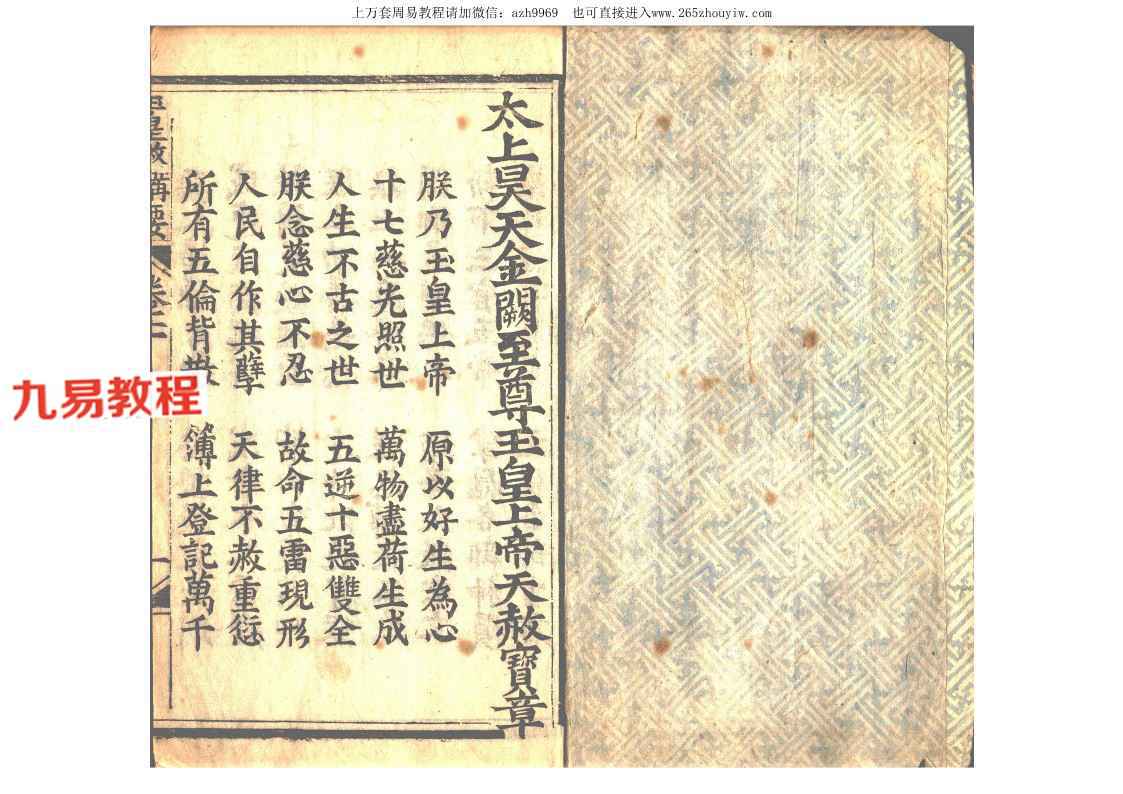 上万套周易教程请加微信：azh9969　也可直接进入www.265zhouyiw.com
太上昊天金闕至尊玉皇上帝天赦寶章
朕乃玉皇上帝　原以好生為心
十七慈光照世　萬物盡荷生成
人生不古之世　五逆十惡雙全
朕念慈心不忍　故命五雷現形
人民自作其孽　天律不赦重愆
所有五倫背　簿上登記萬千
皇赦講要
卷二
九易教程